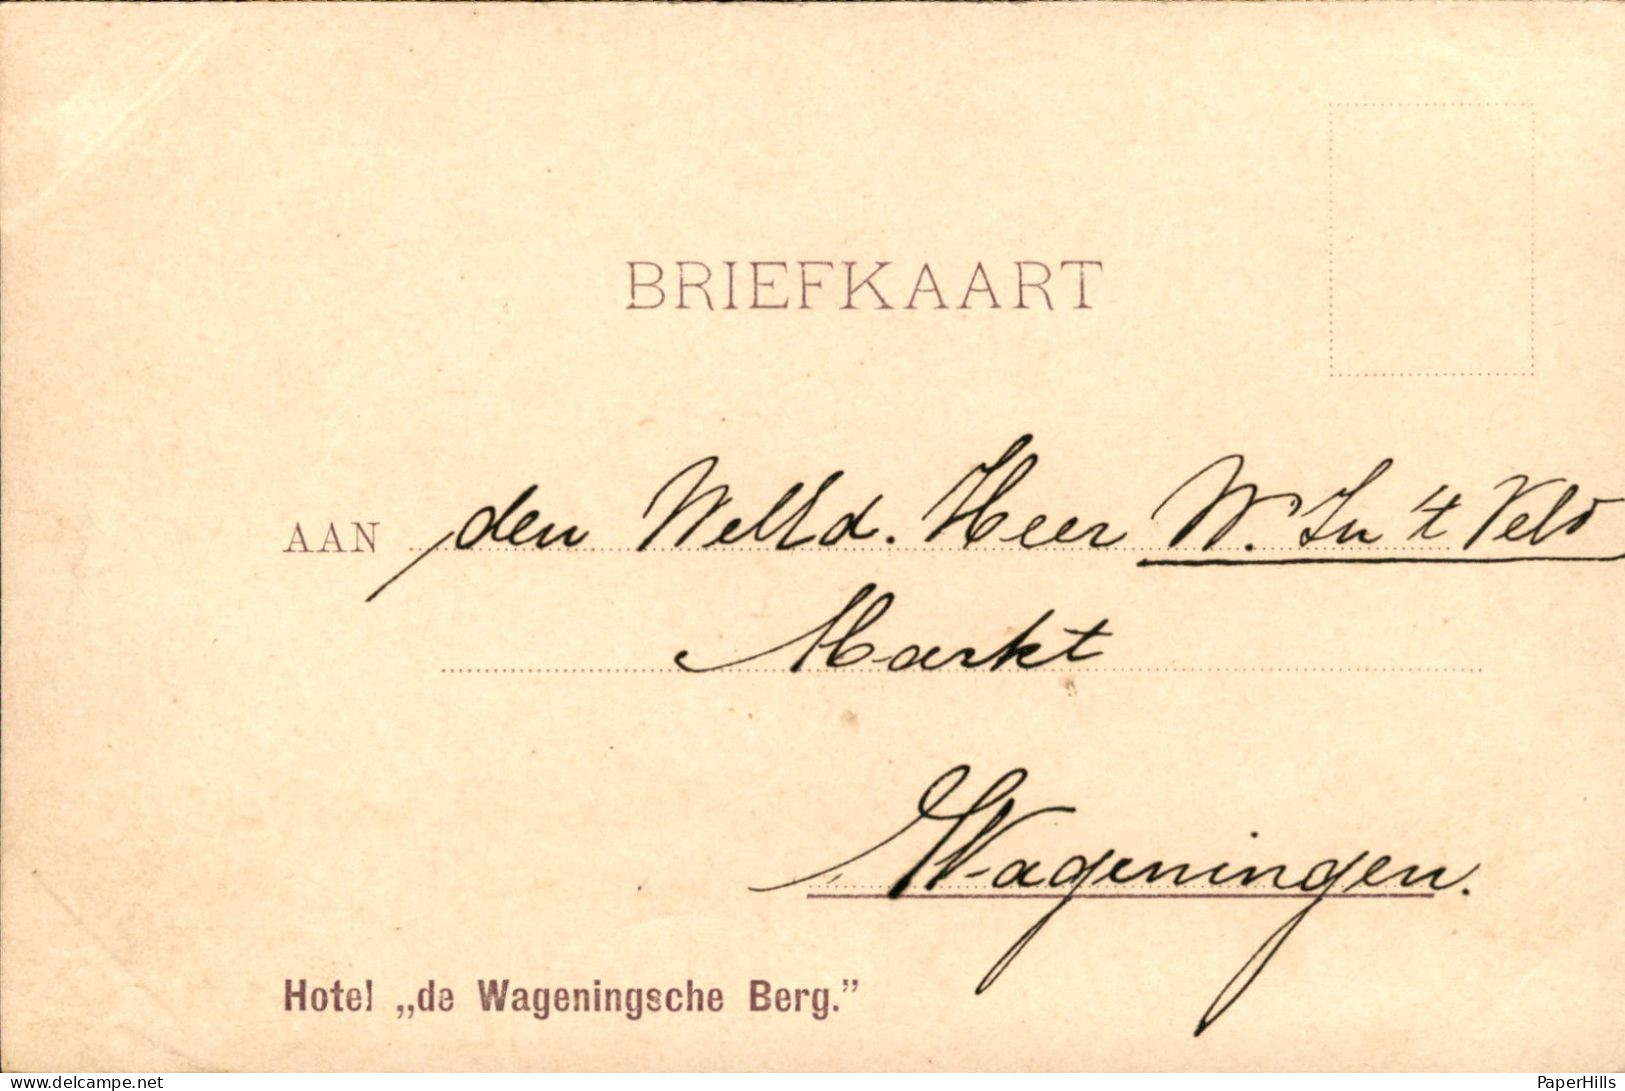 BRIEFKAART
AAN den WelEd. Heer W. In 't Veld
Markt
Wageningen.
Hotel „de Wageningsche Berg.”
www.delcampe.net
PaperHills